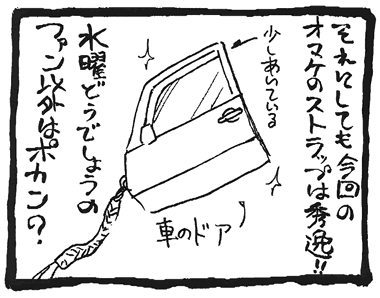 それにしても今回の
オマケのストラップは秀逸!!
少しあいている
車のドア
水曜どうでしょうの
ファン以外はポカン?